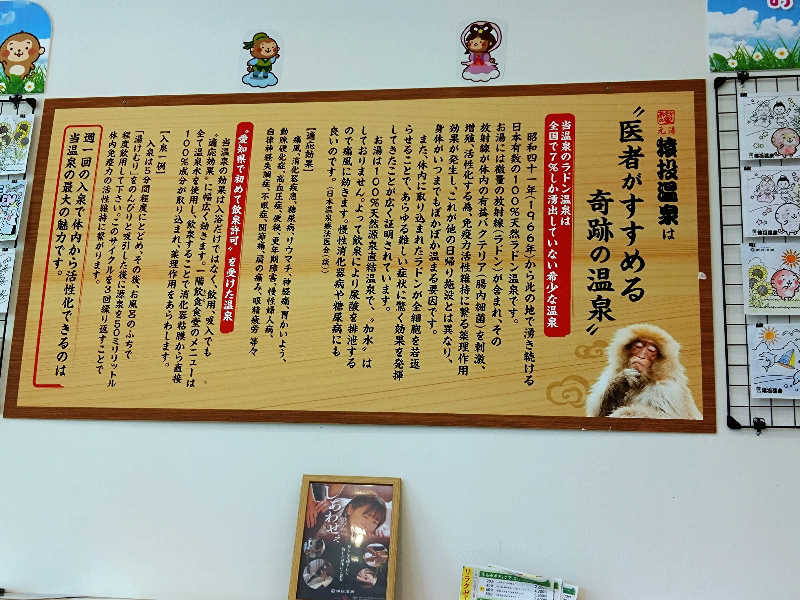 元湯
猿投温泉は
“医者がすすめる
奇跡の温泉”
当温泉のラドン温泉は
全国で7%しか湧出していない希少な温泉
昭和四十一年(1966年)から此の地で湧き続ける
日本有数の100%天然ラドン温泉です。
お湯には微量の放射線(ラドン)が含まれ、その
放射線が体内の有益バクテリア(腸内細菌)を刺激、
増殖、活性化する為、免疫力活性維持に繋る薬理作用
効果が発生し、これが他の日帰り施設とは異なり、
身体がいつまでもぽかぽか温まる要因です。
また、体内に取り込まれたラドンが全細胞を若返
らせることで、あらゆる難しい症状に驚く効果を発揮
してきたことが広く証明されています。
お湯は100%天然源泉直結温泉で、“加水”は
しておりません。よって飲泉により尿酸を排泄する
ので痛風に効きます。慢性消化器病や糖尿病にも
良いのです。(日本温泉療法医会談)
【適応効果】
痛風、消化器疾患、糖尿病、リウマチ、神経痛、胃かいよう、
動脈硬化症、高血圧症、便秘、更年期障害、慢性婦人病、
自律神経失調症、不眠症、関節痛、肩の痛み、眼精疲労 等々
“愛知県で初めて飲泉許可”を受けた温泉
当温泉の効果は入浴だけではなく、飲用、吸入でも
“適応効果”に幅広く効きます。一階飲食食堂のメニューは
全て温泉水を使用し、飲泉することで消化器粘膜から直接
100%成分が取り込まれ、薬理作用をあらわします。
【入泉一例】
入泉は5分間程度にとどめ、その後、お風呂のふちで
「湯けむり」をのんびりと吸引した後に源泉を50ミリリットル
程度飲用して下さい。このサイクルを3回繰り返すことで
体内免疫力の活性維持に繋がります。
週一回の入泉で体内から活性化できるのは
当温泉の最大の魅力です。
しあわせ〜
猿投温泉